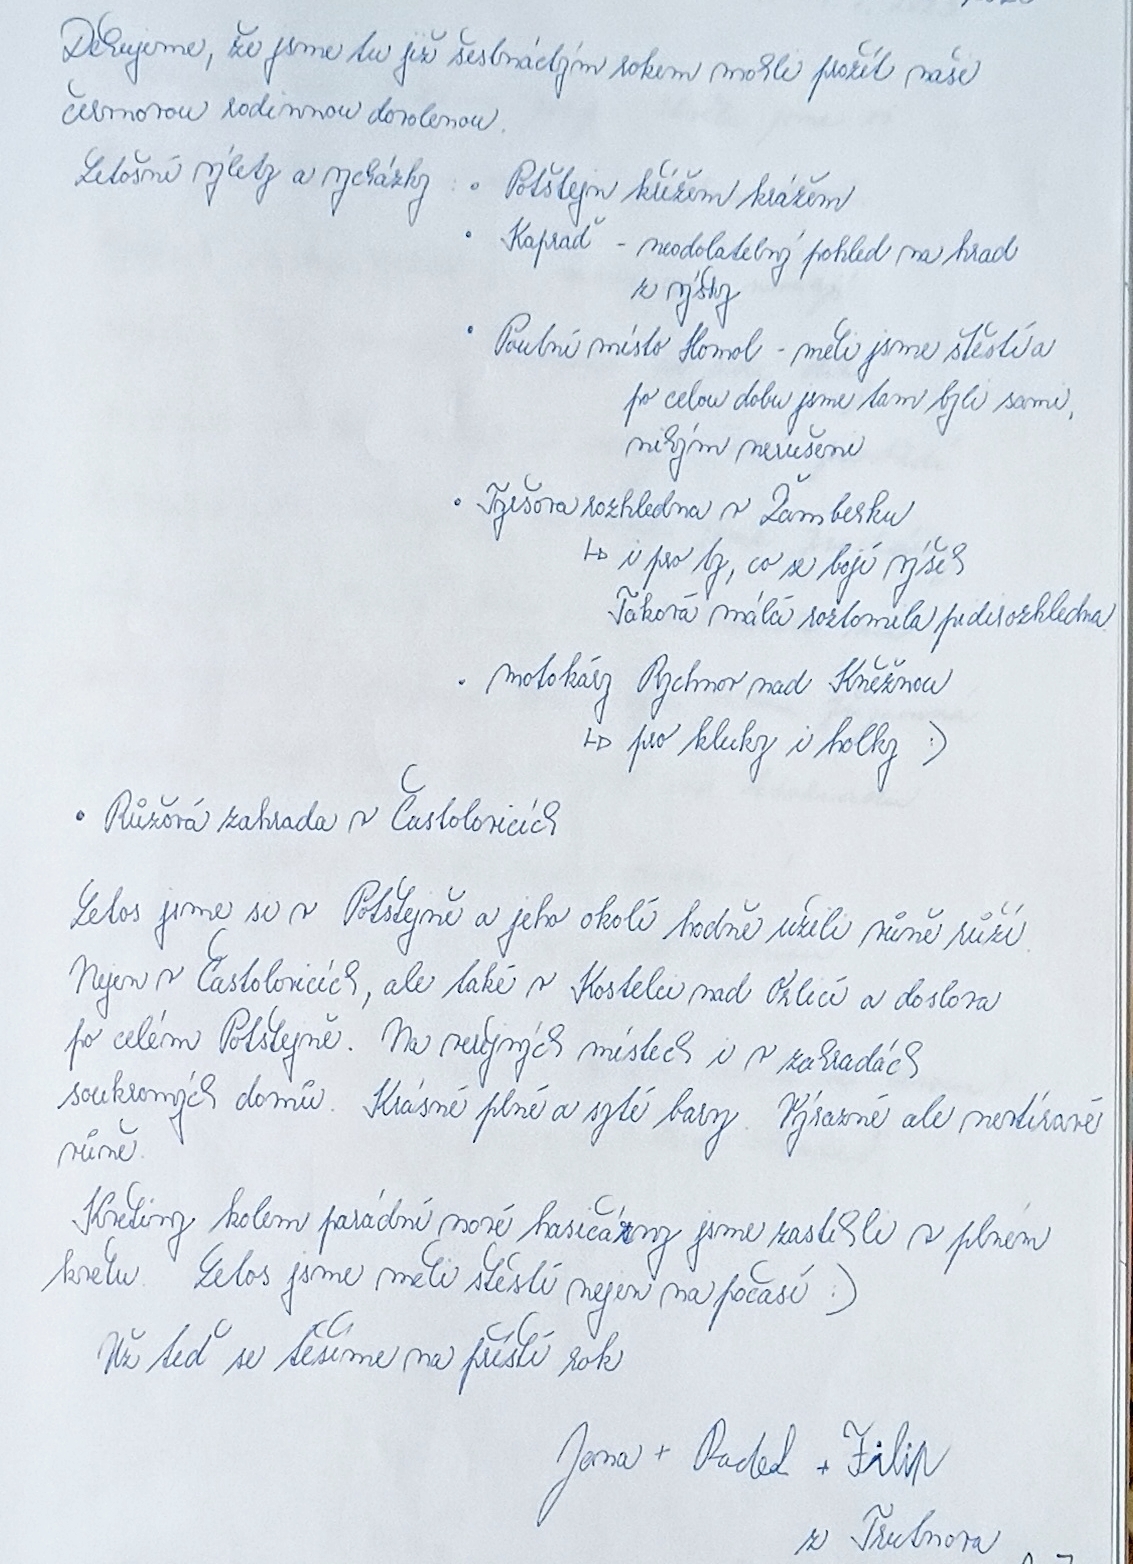 Děkujeme, že jsme tu již šestnáctým rokem mohli prožít naši
červnovou rodinnou dovolenou.
Letošní výlety a vycházky : • Potštejn křížem krážem
• Kapraď - neodolatelný pohled na hrad
z výšky
• Poutní místo Homol - měli jsme štěstí a
po celou dobu jsme tam byli sami,
nikým nerušeni
• Tyršova rozhledna v Žamberku
↳ i pro ty, co se bojí výšek
Taková malá roztomilá pidirozhledna
• motokáry Rychnov nad Kněžnou
↳ pro kluky i holky :)
• Růžová zahrada v Častolovicích
Letos jsme si v Potštejně a jeho okolí hodně užili vůně růží.
Nejen v Častolovicích, ale také v Kostelci nad Orlicí a doslova
po celém Potštejně. Na veřejných místech i v zahradách
soukromých domů. Krásné plné a syté barvy. Výrazné ale nevtíravé
vůně.
Květiny kolem parádní nové hasičárny jsme zastihli v plném
květu. Letos jsme měli štěstí nejen na počasí :)
Už teď se těšíme na příští rok
Jana + Radek + Filip
z Trutnova